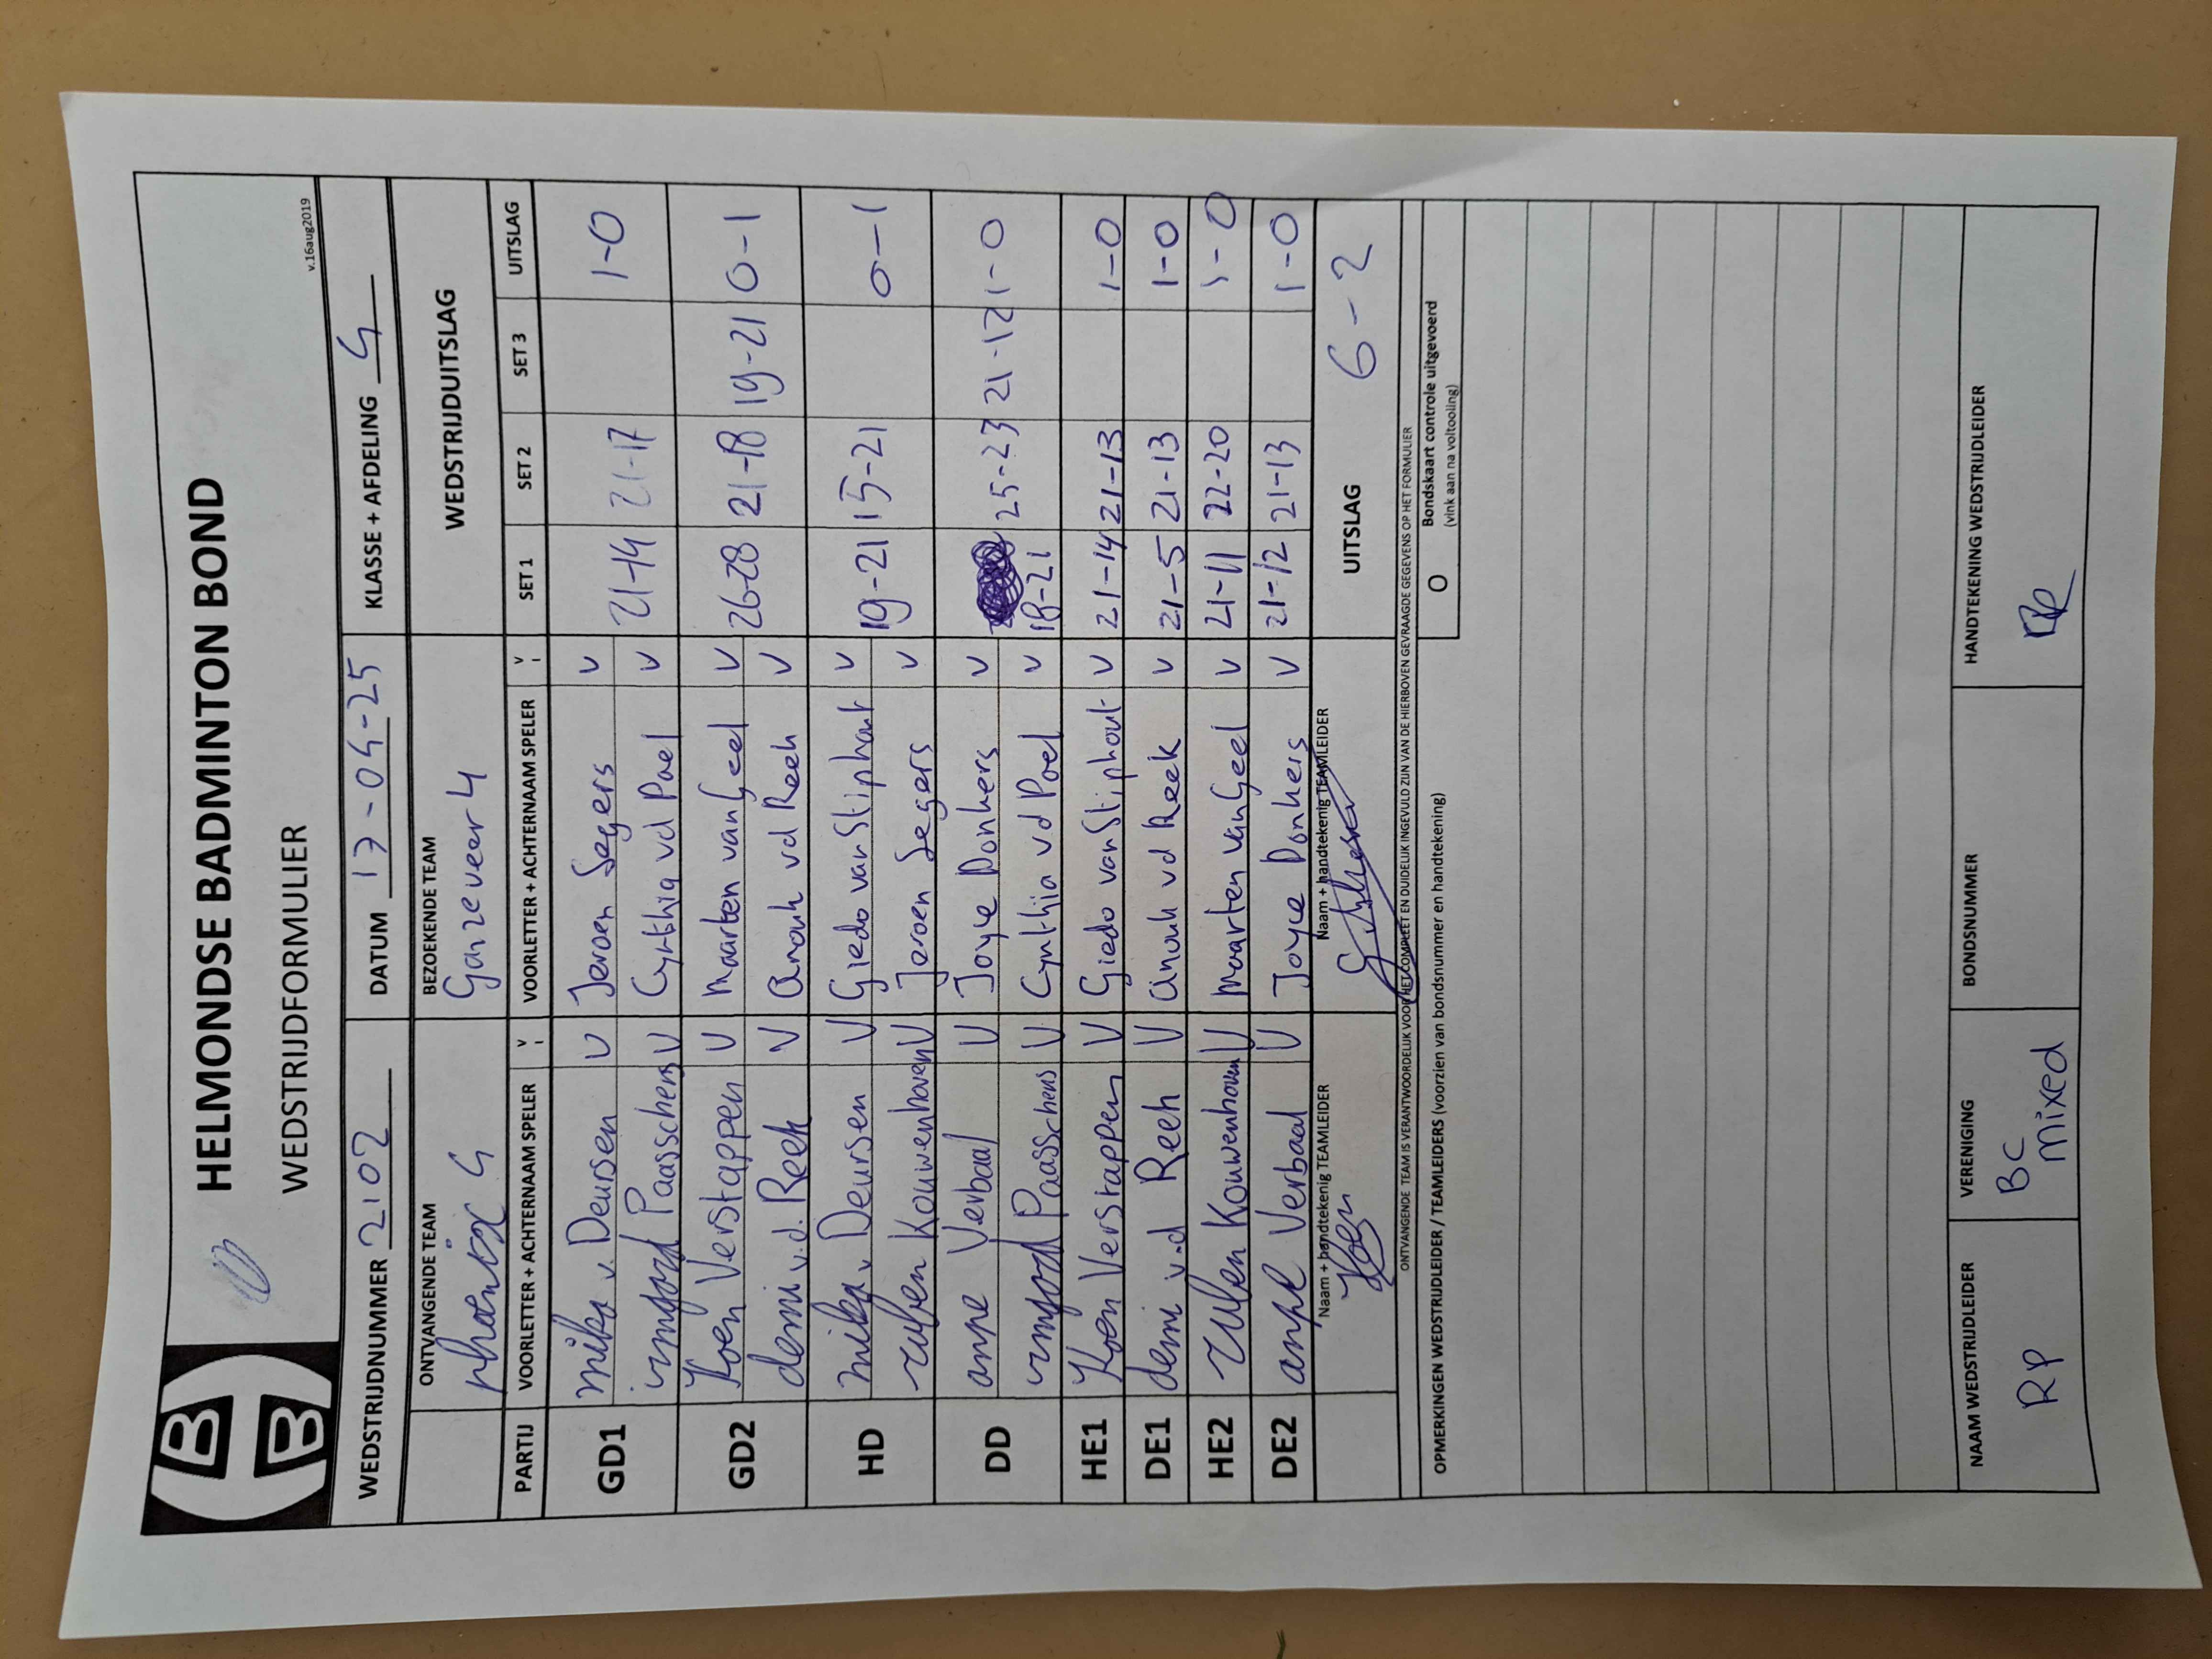 HELMONDSE BADMINTON BOND
WEDSTRIJDFORMULIER
v.16aug2019
WEDSTRIJDNUMMER 2102 DATUM 17-04-25 KLASSE + AFDELING 4
ONTVANGENDE TEAM BEZOEKENDE TEAM WEDSTRIJDUITSLAG
phoenix 4 Ganzeveer 4
PARTIJ VOORLETTER + ACHTERNAAM SPELER V VOORLETTER + ACHTERNAAM SPELER V SET 1 SET 2 SET 3 UITSLAG
GD1 mika v. Deursen V Jeroen Segers V 21-14 21-17 1-0
irmgord Paasschens V Cynthia vd Poel V
GD2 Koen Verstappen V Maarten van Geel V 26-28 21-18 19-21 0-1
demi v.d. Reek V Anouk vd Reek V
HD mika v Deursen V Giedo van Stiphout V 19-21 15-21 0-1
ruben Kouwenhoven V Jeroen Segers V
DD anne Verbaal V Joyce Donkers V 18-21 25-23 21-12 1-0
irmgord Paasschens V Cynthia vd Poel V
HE1 Koen Verstappen V Giedo van Stiphout V 21-14 21-13 1-0
DE1 demi v.d Reek V Anouk vd Reek V 21-5 21-13 1-0
HE2 ruben Kouwenhoven V Maarten van Geel V 21-11 22-20 1-0
DE2 anne Verbaal V Joyce Donkers V 21-12 21-13 1-0
Naam + handtekenig TEAMLEIDER Naam + handtekenig TEAMLEIDER UITSLAG 6-2
Koen
ONTVANGENDE TEAM IS VERANTWOORDELIJK VOOR HET COMPLEET EN DUIDELIJK INGEVULD ZIJN VAN DE HIERBOVEN GEVRAAGDE GEGEVENS OP HET FORMULIER
OPMERKINGEN WEDSTRIJDLEIDER / TEAMLEIDERS (voorzien van bondsnummer en handtekening)
O Bondskaart controle uitgevoerd
(vink aan na voltooling)
NAAM WEDSTRIJDLEIDER VERENIGING BONDSNUMMER HANDTEKENING WEDSTRIJDLEIDER
RP BC
mixed